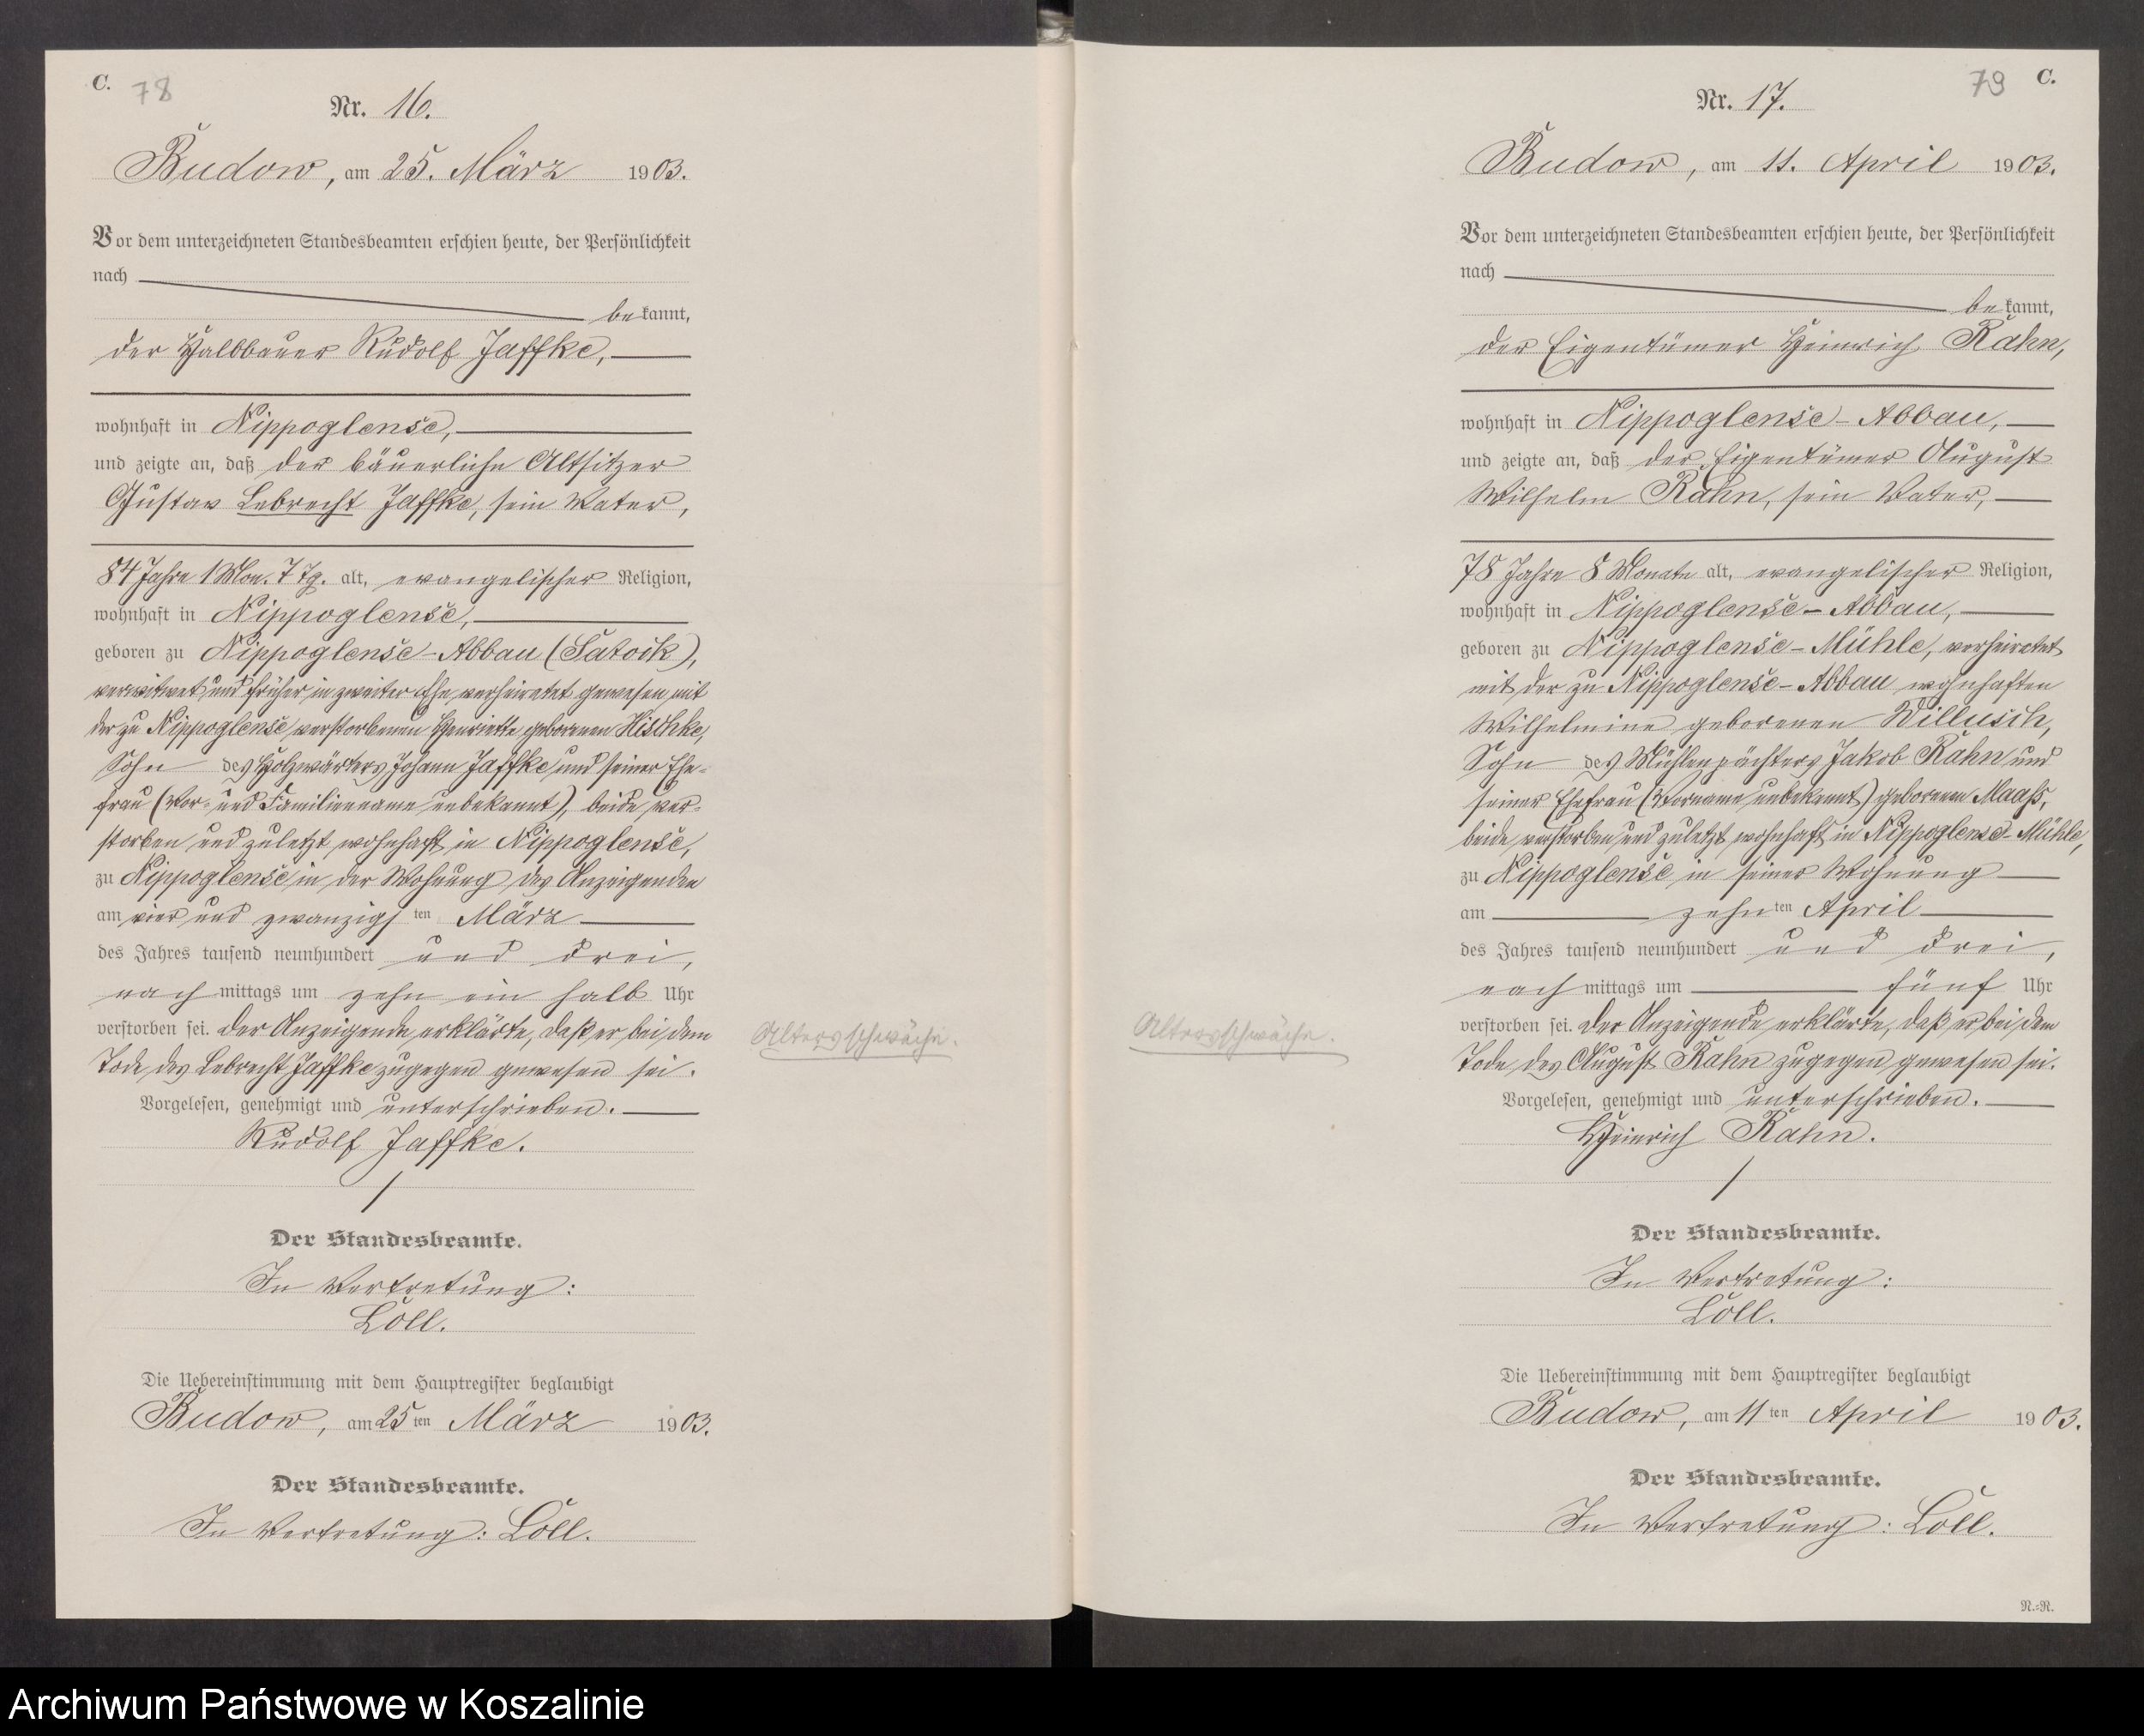 C. 78
Nr. 16.
Budow, am 25. März 1903.
Vor dem unterzeichneten Standesbeamten erschien heute, der Persönlichkeit
nach
bekannt,
der Halbbauer Rudolf Jaffke,
wohnhaft in Nippoglense,
und zeigte an, daß der bäuerliche Altsitzer
Gustav Lebrecht Jaffke, sein Vater,
84 Jahre 1 Mon. 7 Tg. alt, evangelischer Religion,
wohnhaft in Nippoglense,
geboren zu Nippoglense-Abbau (Satoik),
verwitwet und früher in zweiter Ehe verheiratet gewesen mit
der zu Nippoglense verstorbenen Henriette geborenen Hischke,
Sohn des Holzwärters Johann Jaffke und seiner Ehe-
frau (Vor- und Familienname unbekannt), beide ver-
storben und zuletzt wohnhaft in Nippoglense,
zu Nippoglense in der Wohnung des Anzeigenden
am vier und zwanzigsten März
des Jahres tausend neunhundert und drei,
nachmittags um zehn ein halb Uhr
verstorben sei. Der Anzeigende erklärte, daß er bei dem
Tode des Lebrecht Jaffke zugegen gewesen sei.
Vorgelesen, genehmigt und unterschrieben.
Rudolf Jaffke.
Der Standesbeamte.
In Vertretung:
Löll.
Die Uebereinstimmung mit dem Hauptregister beglaubigt
Budow, am 25ten März 1903.
Der Standesbeamte.
In Vertretung: Löll.
Altersschwäche.
79 C.
Nr. 17.
Budow, am 11. April 1903.
Vor dem unterzeichneten Standesbeamten erschien heute, der Persönlichkeit
nach
bekannt,
der Eigentümer Heinrich Rahn,
wohnhaft in Nippoglense-Abbau,
und zeigte an, daß der Eigentümer August
Wilhelm Rahn, sein Vater,
78 Jahre 8 Monate alt, evangelischer Religion,
wohnhaft in Nippoglense-Abbau,
geboren zu Nippoglense-Mühle, verheiratet
mit der zu Nippoglense-Abbau wohnhaften
Wilhelmine geborenen Willusch,
Sohn des Mühlenpächters Jakob Rahn und
seiner Ehefrau (Vorname unbekannt) geborenen Maaß,
beide verstorben und zuletzt wohnhaft in Nippoglense-Mühle,
zu Nippoglense in seiner Wohnung
am zehnten April
des Jahres tausend neunhundert und drei,
nachmittags um fünf Uhr
verstorben sei. Der Anzeigende erklärte, daß er bei dem
Tode des August Rahn zugegen gewesen sei.
Vorgelesen, genehmigt und unterschrieben.
Heinrich Rahn.
Der Standesbeamte.
In Vertretung:
Löll.
Die Uebereinstimmung mit dem Hauptregister beglaubigt
Budow, am 11ten April 1903.
Der Standesbeamte.
In Vertretung: Löll.
Altersschwäche.
N.=R.
Archiwum Państwowe w Koszalinie